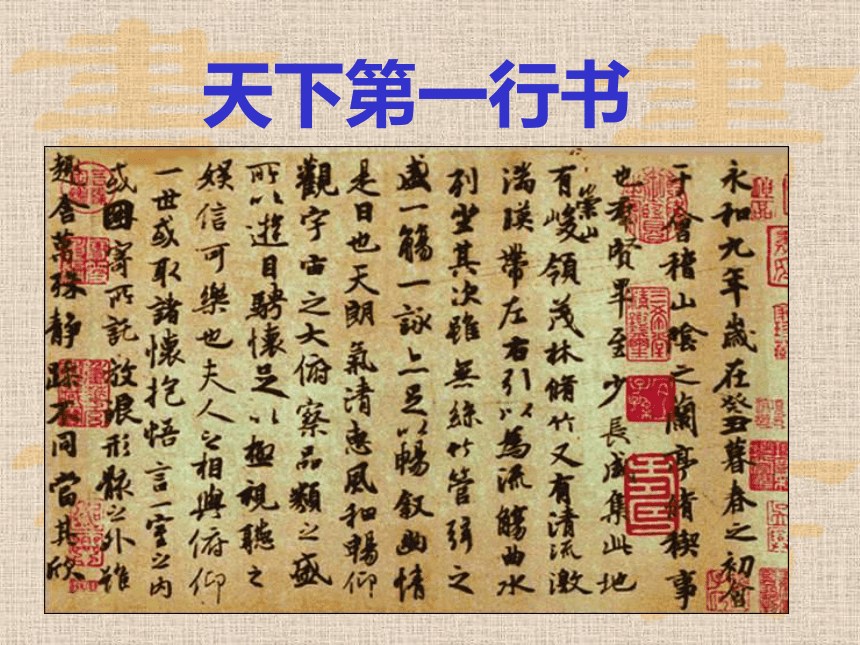 天下第一行书
永和九年歲在癸丑暮春之初會
于會稽山陰之蘭亭脩稧事
也羣賢畢至少長咸集此地
有崇山峻領茂林脩竹又有清流激
湍暎帶左右引以為流觴曲水
列坐其次雖無絲竹管弦之
盛一觴一詠亦足以暢敘幽情
是日也天朗氣清惠風和暢仰
觀宇宙之大俯察品類之盛
所以遊目騁懷足以極視聽之
娛信可樂也夫人之相與俯仰
一世或取諸懷抱悟言一室之內
或因寄所託放浪形骸之外雖
趣舍萬殊靜躁不同當其欣